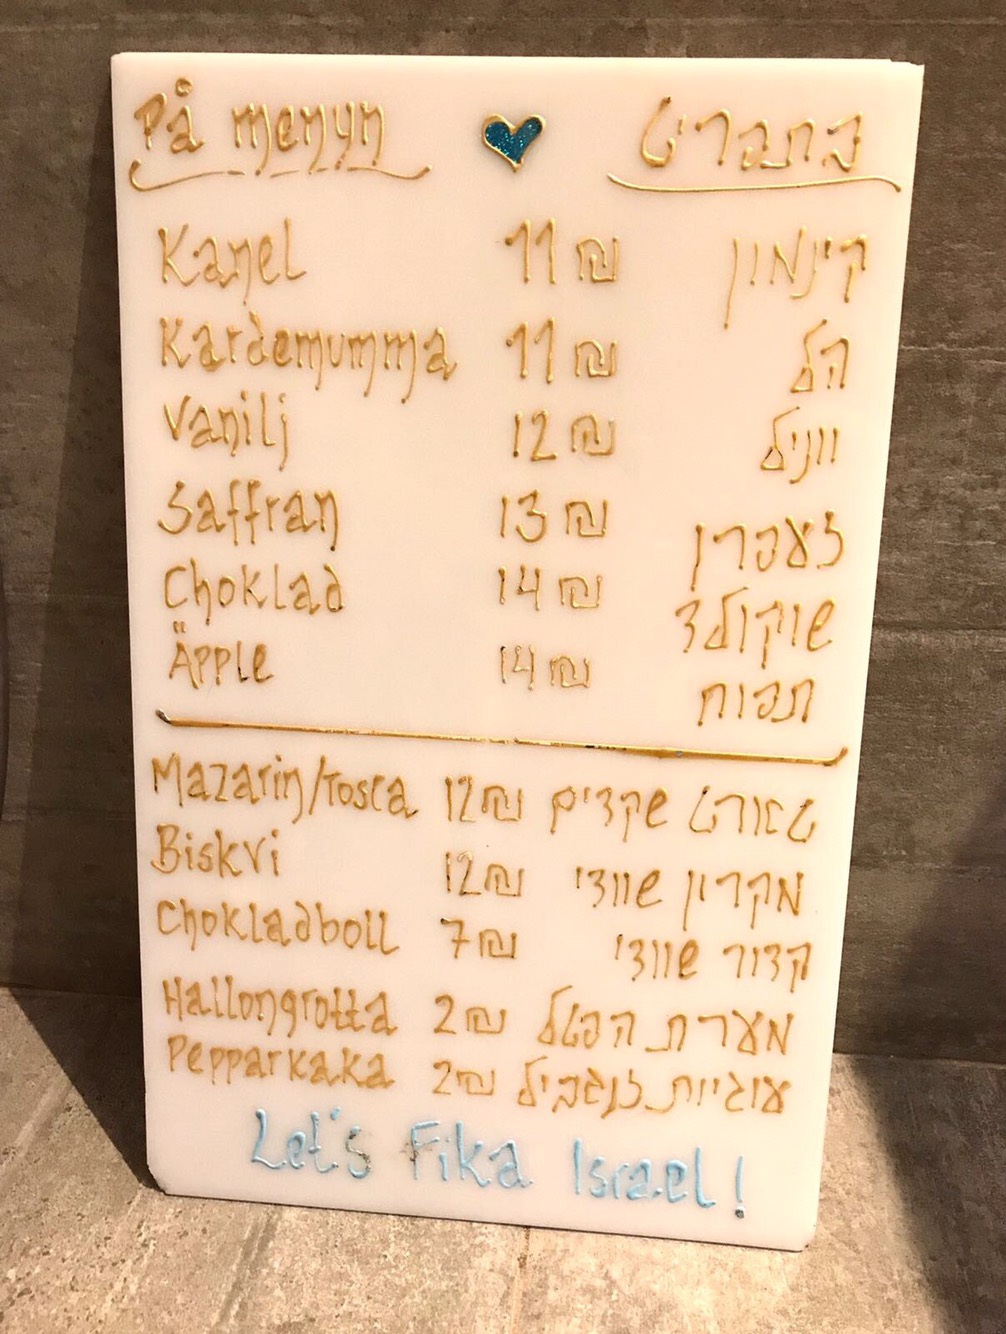 På menyn בתפריט
Kanel 11 ₪ קינמון
Kardemumma 11 ₪ הל
Vanilj 12 ₪ ווניל
Saffran 13 ₪ זעפרן
Choklad 14 ₪ שוקולד
Äpple 14 ₪ תפוח
Mazarin/Tosca 12 ₪ טארט שקדים
Biskvi 12 ₪ מקרון שוודי
Chokladboll 7 ₪ קדור שוודי
Hallongrotta 2 ₪ מערת הפטל
Pepparkaka 2 ₪ עוגיות זנגביל
Let's Fika Israel!